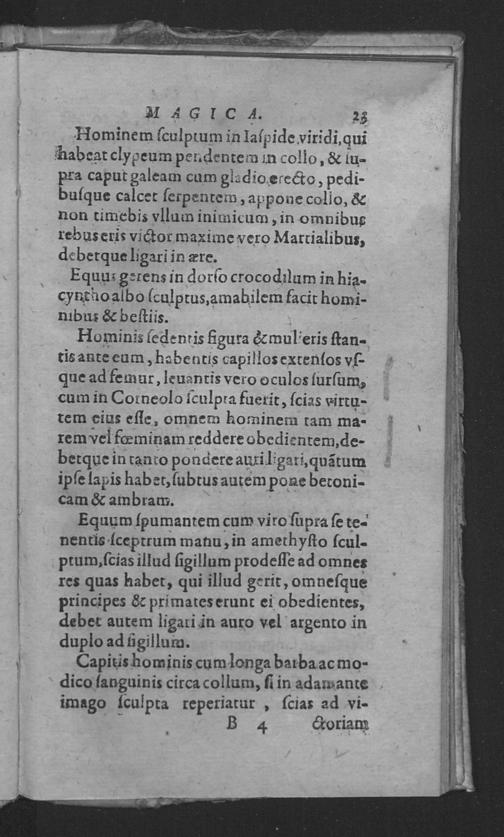 MAGICA. 23
Hominem ſculptum in Iaſpide viridi, qui
habeat clypeum pendentem in collo, & ſu-
pra caput galeam cum gladio erecto, pedi-
buſque calcet ſerpentem, appone collo, &
non timebis vllum inimicum, in omnibus
rebus eris victor maxime vero Martialibus,
debetque ligari in ære.
Equus gerens in dorſo crocodilum in hia-
cyntho albo ſculptus, amabilem facit homi-
nibus & beſtiis.
Hominis ſedentis figura & mulieris ſtan-
tis ante eum, habentis capillos extenſos vſ-
que ad femur, leuantis vero oculos ſurſum,
cum in Corneolo ſculpta fuerit, ſcias virtu-
tem eius eſſe, omnem hominem tam ma-
rem vel fœminam reddere obedientem, de-
betque in tanto pondere auri ligari, quãtum
ipſe lapis habet, ſubtus autem pone betoni-
cam & ambram.
Equum ſpumantem cum viro ſupra ſe te-
nentis ſceptrum manu, in amethyſto ſcul-
ptum, ſcias illud ſigillum prodeſſe ad omnes
res quas habet, qui illud gerit, omneſque
principes & primates erunt ei obedientes,
debet autem ligari in auro vel argento in
duplo ad ſigillum.
Capitis hominis cum longa barba ac mo-
dico ſanguinis circa collum, ſi in adamante
imago ſculpta reperiatur, ſcias ad vi-
B 4 ctoriam